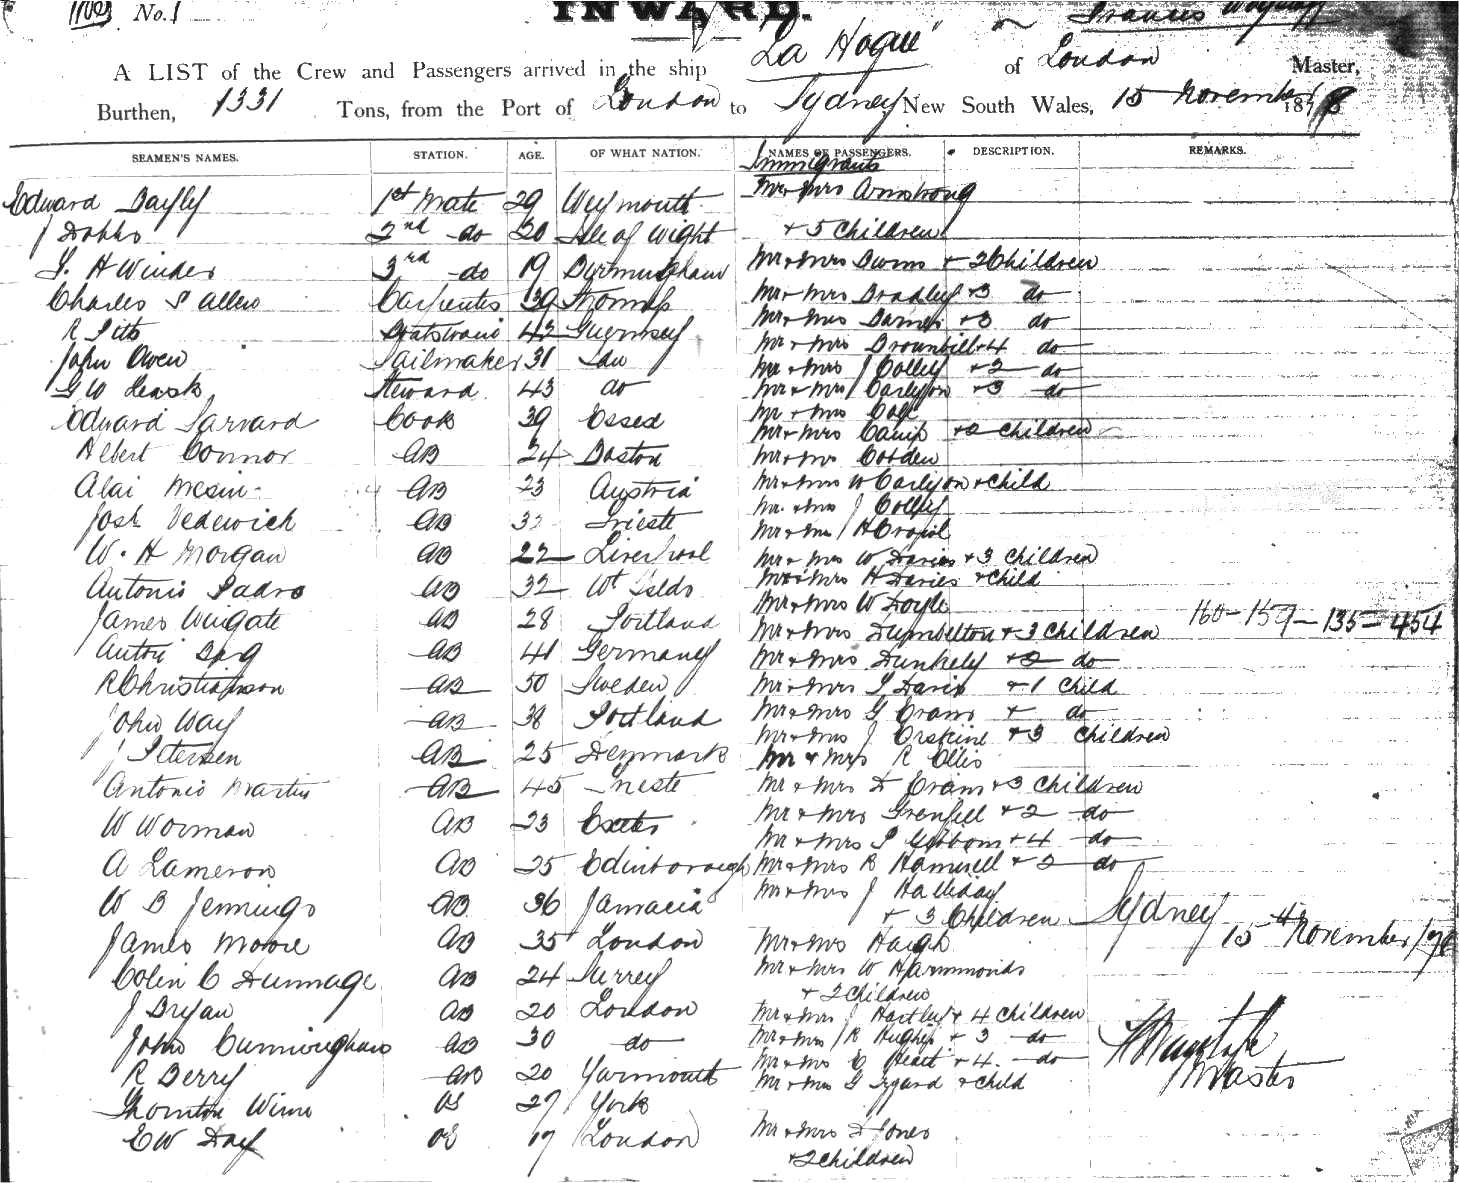 No. 1
INWARD.
"La Hogue" of London Francis Master,
A LIST of the Crew and Passengers arrived in the ship
Burthen, 1331 Tons, from the Port of London to Sydney New South Wales, 15 November 1878
SEAMEN'S NAMES. STATION. AGE. OF WHAT NATION. NAMES OF PASSENGERS. DESCRIPTION. REMARKS.
Immigrants
Edward Bayly 1st Mate 29 Weymouth Mr & Mrs Armstrong
J Dobbs 2nd do 20 Isle of Wight & 5 Children
H Winder 3rd do 19 Byrmingham Mr & Mrs & 2 Children
Charles S Allen Carpenter 39 Mr & Mrs Bradley & 3 do
R Pitts Boatswain 42 Guernsey Mr & Mrs Barnes & 3 do
Mr & Mrs Brownbill & 4 do
John Owen Sailmaker 31 Mr & Mrs J Colley & 2 do
G W Leask Steward 43 do Mr & Mrs Carlyon & 3 do
Mr & Mrs Cole
Edward Sarvard Cook 39 Essex Mr & Mrs Camp & 2 Children
Albert Connor AB 24 Boston Mr & Mrs Cobden
AB 23 Austria Mr & Mrs W Carlyon & Child
Josh Vedewich AB Trieste Mr & Mrs J Colley
Mr & Mrs H
W. H Morgan AB 22 Liverpool Mr & Mrs W Davies & 3 Children
Mr & Mrs H Davies & Child
Antonio AB 32 Wt Mr & Mrs W Doyle
James Wingate AB 28 Portland Mr & Mrs Dumbelton & 3 Children 160 - 159 - 135 - 454
AB 41 Germany Mr & Mrs Dunkely & 2 do
R Christianson AB 50 Sweden Mr & Mrs Davis & 1 Child
John Way AB 38 Portland Mr & Mrs G Evans & do
Mr & Mrs J Erskine & 3 Children
J Petersen AB 25 Denmark Mr & Mrs R Ellis
Antonio Martin AB 45 Trieste Mr & Mrs D Evans & 3 Children
W Worman AB 23 Exeter Mr & Mrs Grenfell & 2 do
Mr & Mrs Gibbons & 4 do
A Cameron AB 25 Edinborough Mr & Mrs R & 2 do
W B Jennings AB 36 Jamacia Mr & Mrs J Halliday
& 3 Children Sydney
James Moore AB 35 London Mr & Mrs Haigh 15th November /78
Colin C Dunnage AB 24 Surrey Mr & Mrs W Hammonds
& 2 Children
J Bryan AB 20 London Mr & Mrs J Hartley & 4 Children
John Cunningham AB 30 do Mr & Mrs R Hughes & 3 do
Mr & Mrs C Heath & 4 do
R Berry AB 20 Yarmouth Mr & Mrs G & Child Master
Thornton Winn OS 27 York
E W Day OS 17 London Mr & Mrs D Jones
& 2 Children